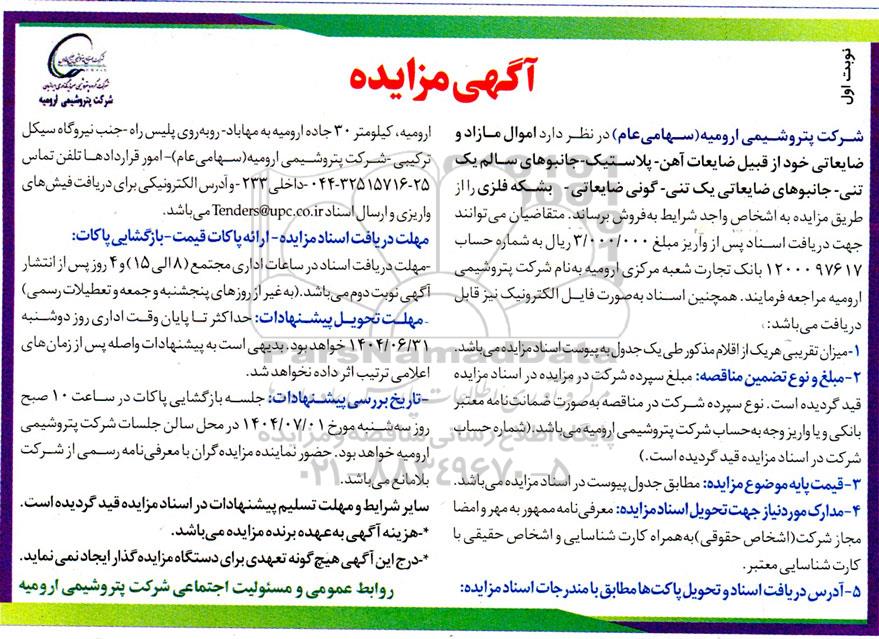 نوبت اول
شرکت پتروشیمی ارومیه
آگهی مزایده
شرکت پتروشیمی ارومیه(سهامی‌عام) در نظر دارد اموال مازاد و
ضایعاتی خود از قبیل ضایعات آهن- پلاستیک-جانبوهای سالم یک
تنی- جانبوهای ضایعاتی یک تنی- گونی ضایعاتی - بشکه فلزی را از
طریق مزایده به اشخاص واجد شرایط به‌فروش برساند. متقاضیان می‌توانند
جهت دریافت اسناد پس از واریز مبلغ ۳/۰۰۰/۰۰۰ ریال به شماره حساب
۹۷۶۱۷ ۱۲۰۰۰ بانک تجارت شعبه مرکزی ارومیه به‌نام شرکت پتروشیمی
ارومیه مراجعه فرمایند. همچنین اسناد به‌صورت فایل الکترونیک نیز قابل
دریافت می‌باشد:
۱-میزان تقریبی هریک از اقلام مذکور طی یک جدول به پیوست اسناد مزایده می‌باشد.
۲-مبلغ و نوع تضمین مناقصه: مبلغ سپرده شرکت در مزایده در اسناد مزایده
قید گردیده است. نوع سپرده شرکت در مناقصه به‌صورت ضمانت‌نامه معتبر
بانکی و یا واریز وجه به‌حساب شرکت پتروشیمی ارومیه می‌باشد.(شماره حساب
شرکت در اسناد مزایده قید گردیده است.)
۳-قیمت پایه موضوع مزایده: مطابق جدول پیوست در اسناد مزایده می‌باشد.
۴-مدارک مورد نیاز جهت تحویل اسناد مزایده: معرفی‌نامه ممهور به مهر و امضا
مجاز شرکت(اشخاص حقوقی) به‌همراه کارت شناسایی و اشخاص حقیقی با
کارت شناسایی معتبر.
۵-آدرس دریافت اسناد و تحویل پاکت‌ها مطابق با مندرجات اسناد مزایده:
ارومیه، کیلومتر ۳۰ جاده ارومیه به مهاباد- روبه‌روی پلیس راه -جنب نیروگاه سیکل
ترکیبی -شرکت پتروشیمی ارومیه(سهامی‌عام)- امور قراردادها تلفن تماس
۲۵-۰۴۴-۳۲۵۱۵۷۱۶ -داخلی ۲۳۳ - و آدرس الکترونیکی برای دریافت فیش‌های
واریزی و ارسال اسناد Tenders@upc.co.ir می‌باشد.
مهلت دریافت اسناد مزایده- ارائه پاکات قیمت-بازگشایی پاکات:
-مهلت دریافت اسناد در ساعات اداری مجتمع (۸ الی ۱۵) و ۴ روز پس از انتشار
آگهی نوبت دوم می‌باشد.(به‌غیر از روزهای پنجشنبه و جمعه و تعطیلات رسمی)
-مهلت تحویل پیشنهادات: حداکثر تا پایان وقت اداری روز دوشنبه
۱۴۰۴/۰۶/۳۱ خواهد بود، بدیهی است به پیشنهادات واصله پس از زمان‌های
اعلامی ترتیب اثر داده نخواهد شد.
-تاریخ بررسی پیشنهادات: جلسه بازگشایی پاکات در ساعت ۱۰ صبح
روز سه‌شنبه مورخ ۱۴۰۴/۰۷/۰۱ در محل سالن جلسات شرکت پتروشیمی
ارومیه خواهد بود. حضور نماینده مزایده‌گران با معرفی‌نامه رسمی از شرکت
بلامانع می‌باشد.
سایر شرایط و مهلت تسلیم پیشنهادات در اسناد مزایده قید گردیده است.
*-هزینه آگهی به‌عهده برنده مزایده می‌باشد.
*-درج این آگهی هیچ گونه تعهدی برای دستگاه مزایده‌گذار ایجاد نمی نماید.
روابط عمومی و مسئولیت اجتماعی شرکت پتروشیمی ارومیه
ParsNamadData
۰۲۱-۸۸۳۴۹۶۷۰-۵